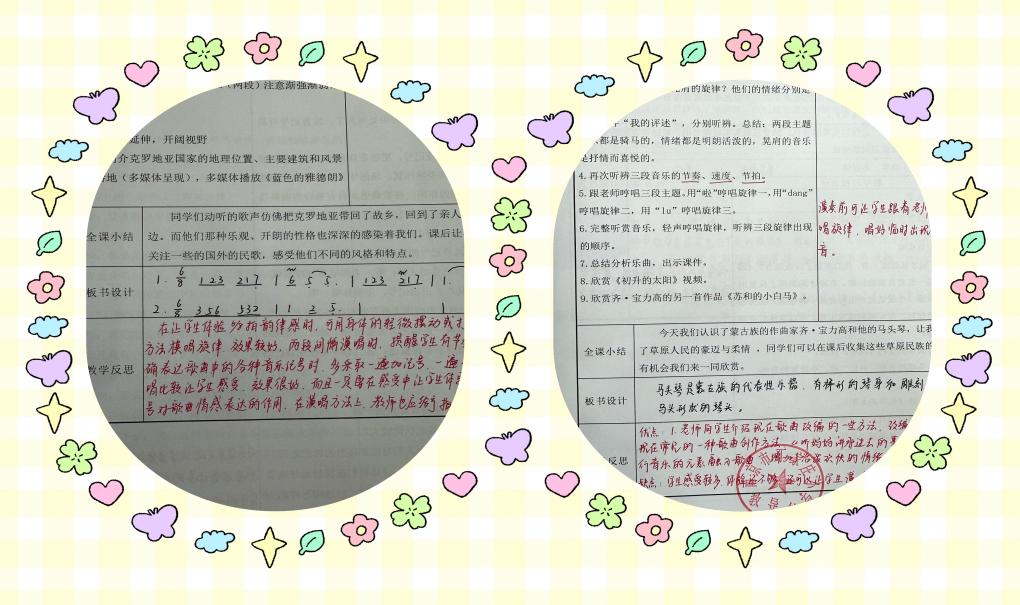 (两段)注意渐强渐弱
延伸,开阔视野
介克罗地亚国家的地理位置、主要建筑和风景
地(多媒体呈现),多媒体播放《蓝色的雅德朗》
全课小结
同学们动听的歌声仿佛把克罗地亚带回了故乡,回到了亲人
边。而他们那种乐观、开朗的性格也深深的感染着我们。课后让
关注一些的国外的民歌,感受他们不同的风格和特点。
板书设计
1. 6/8 123 217 | 6 5 5. | 123 217 | 1.
2. 6/8 356 532 | 1 2 5.
教学反思
在让学生体验 6/8 拍韵律感时,可用身体的轻微摆动或
方法模唱旋律,效果较好,两段间隔演唱时,提醒学生有节
确表达歌曲中的各种音乐记号时,多采取一遍加记号,一遍
唱比较让学生感受,效果很好,而且
号对歌曲情感表达的作用,在演唱方法上,教师也应给予指
肩的旋律?他们的情绪分别是
“我的评述”,分别听辨。总结:两段主题
都是骑马的,情绪都是明朗活泼的,晃肩的音乐
是抒情而喜悦的。
4.再次听辨三段音乐的节奏、速度、节拍。
5.跟老师哼唱三段主题。用“啦”哼唱旋律一,用“dang”
哼唱旋律二,用“lu”哼唱旋律三。
6.完整听赏音乐,轻声哼唱旋律,听辨三段旋律出现
的顺序。
7.总结分析乐曲,出示课件。
8.欣赏《初升的太阳》视频。
9.欣赏齐·宝力高的另一首作品《苏和的小白马》。
演奏前可让学生跟着老师
唱旋律,唱好
音。
全课小结
今天我们认识了蒙古族的作曲家齐·宝力高和他的马头琴,让我
了草原人民的豪迈与柔情 ,同学们可以在课后收集这些草原民族的
有机会我们来一同欣赏。
板书设计
马头琴是蒙古族的代表性乐器,有梯形的琴身和雕刻
马头形状的琴头。
反思
优点:1.老师向学生介绍现在歌曲改编的一些方法,改编
现在常见的一种歌曲创作方法
行音乐的元素融入歌曲
缺点:学生感受较多